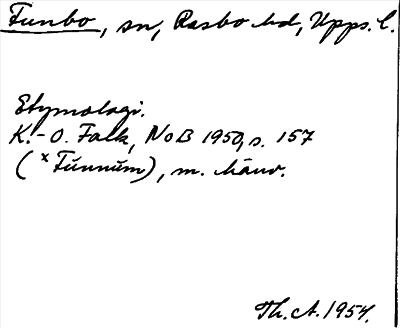 Funbo, sn, Rasbo hd, Upps. l.
Etymologi.
K.-O. Falk, NoB 1950, s. 157
(ˣFúnnúm), m. hänv.
Th. A. 1954.